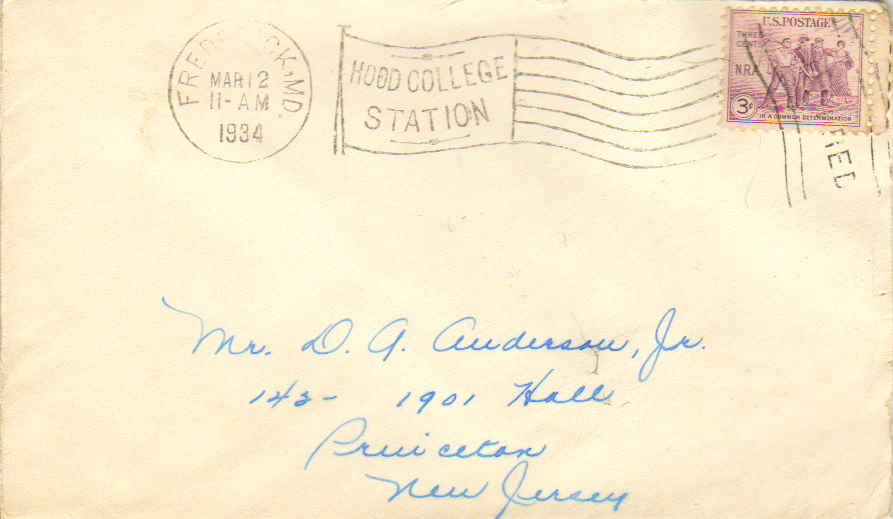 FREDERICK, MD.
MAR 12
11-AM
1934
HOOD COLLEGE
STATION
U.S. POSTAGE
THREE
CENTS
N.R.A.
3¢
IN A COMMON DETERMINATION
Mr. D. A. Anderson, Jr.
143- 1901 Hall
Princeton
New Jersey